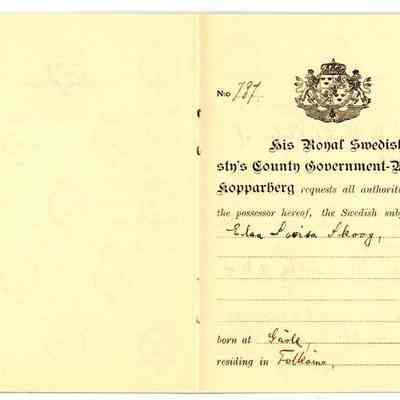 N:o 787.
His Royal Swedish
sty's County Government-
Kopparberg requests all authorit
the possessor hereof, the Swedish sub
Lovisa Skoog,
born at Gävle,
residing in Folkärna,